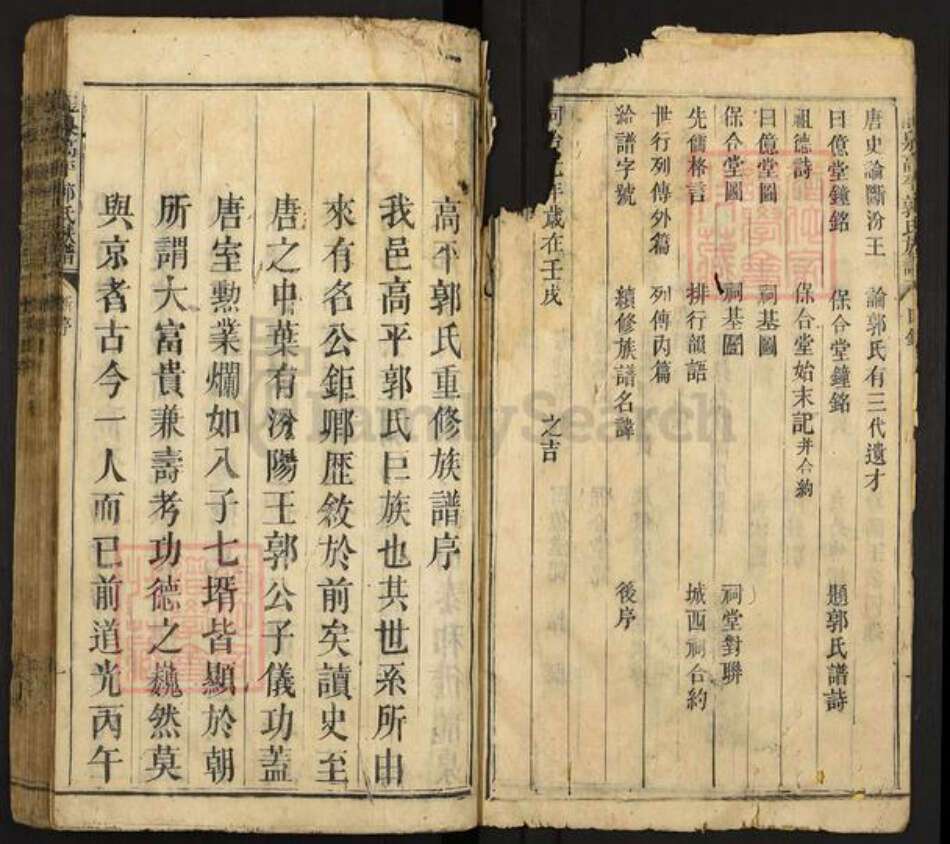 唐史論斷汾王　論郭氏有三代遺才
曰億堂鐘銘　保合堂鐘銘　題郭氏譜詩
祖德詩　保合堂始末記并合約
曰億堂圖　祠基圖
保合堂圖　祠基圖　祠堂對聯
先儒格言　排行韻語　城西祠合約
世行列傳外篇　列傳內篇
給譜字號　續修族譜名諱　後序
年歲在壬戌　之吉
高平郭氏重修族譜序
我邑高平郭氏巨族也其世系所由
來有名公鉅卿歷敘於前矣讀史至
唐之中葉有汾陽王郭公子儀功蓋
唐室勲業爛如八子七壻皆顯於朝
所謂大富貴兼壽考功德之巍然莫
與京者古今一人而已前道光丙午
FamilySearch